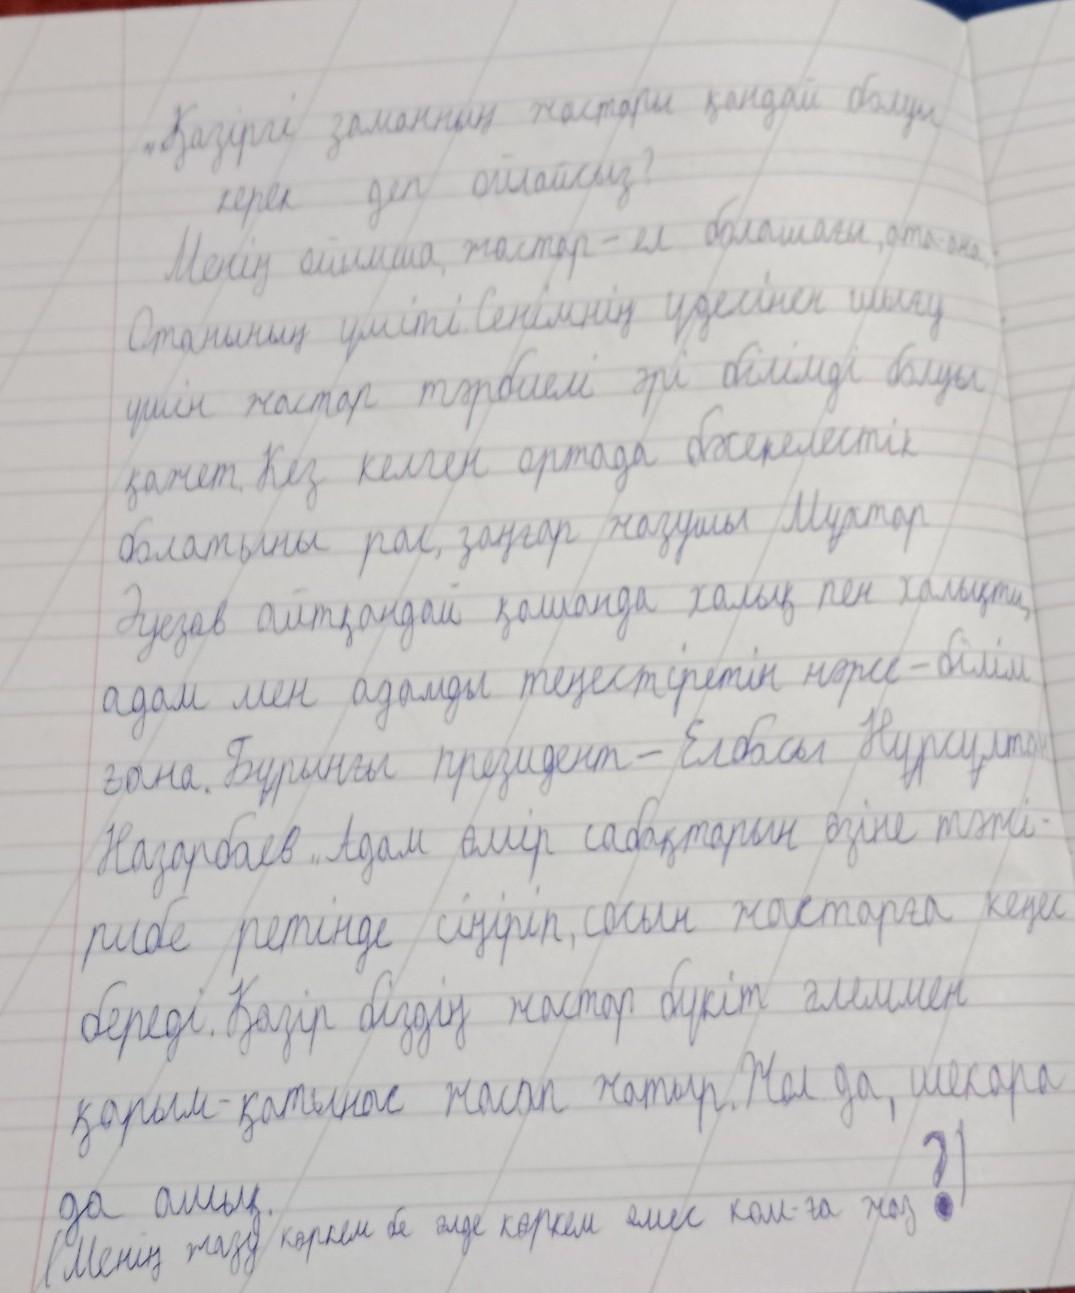 „Қазіргі заманның жастары қандай болуы
керек деп ойлайсыз?
Менің ойымша, жастар – ел болашағы, ата-ана,
Отанының үміті. Сенімнің үдесінен шығу
үшін жастар тәрбиелі әрі білімді болуы
қажет. Кез келген ортада бәсекелестік
болатыны рас, заңғар жазушы Мұхтар
Әуезов айтқандай қашанда халық пен халықты,
адам мен адамды теңестіретін нәрсе – білім
ғана. Бұрынғы президент – Елбасы Нұрсұлтан
Назарбаев „Адам өмір сабақтарын өзіне тәжі-
рибе ретінде сіңіріп, сосын жастарға кеңес
береді. Қазір біздің жастар бүкіл әлеммен
қарым-қатынас жасап жатыр. Жол да, шекара
да ашық.
(Менің жазу көркем бе әлде көркем емес ком-ға жаз ?!)